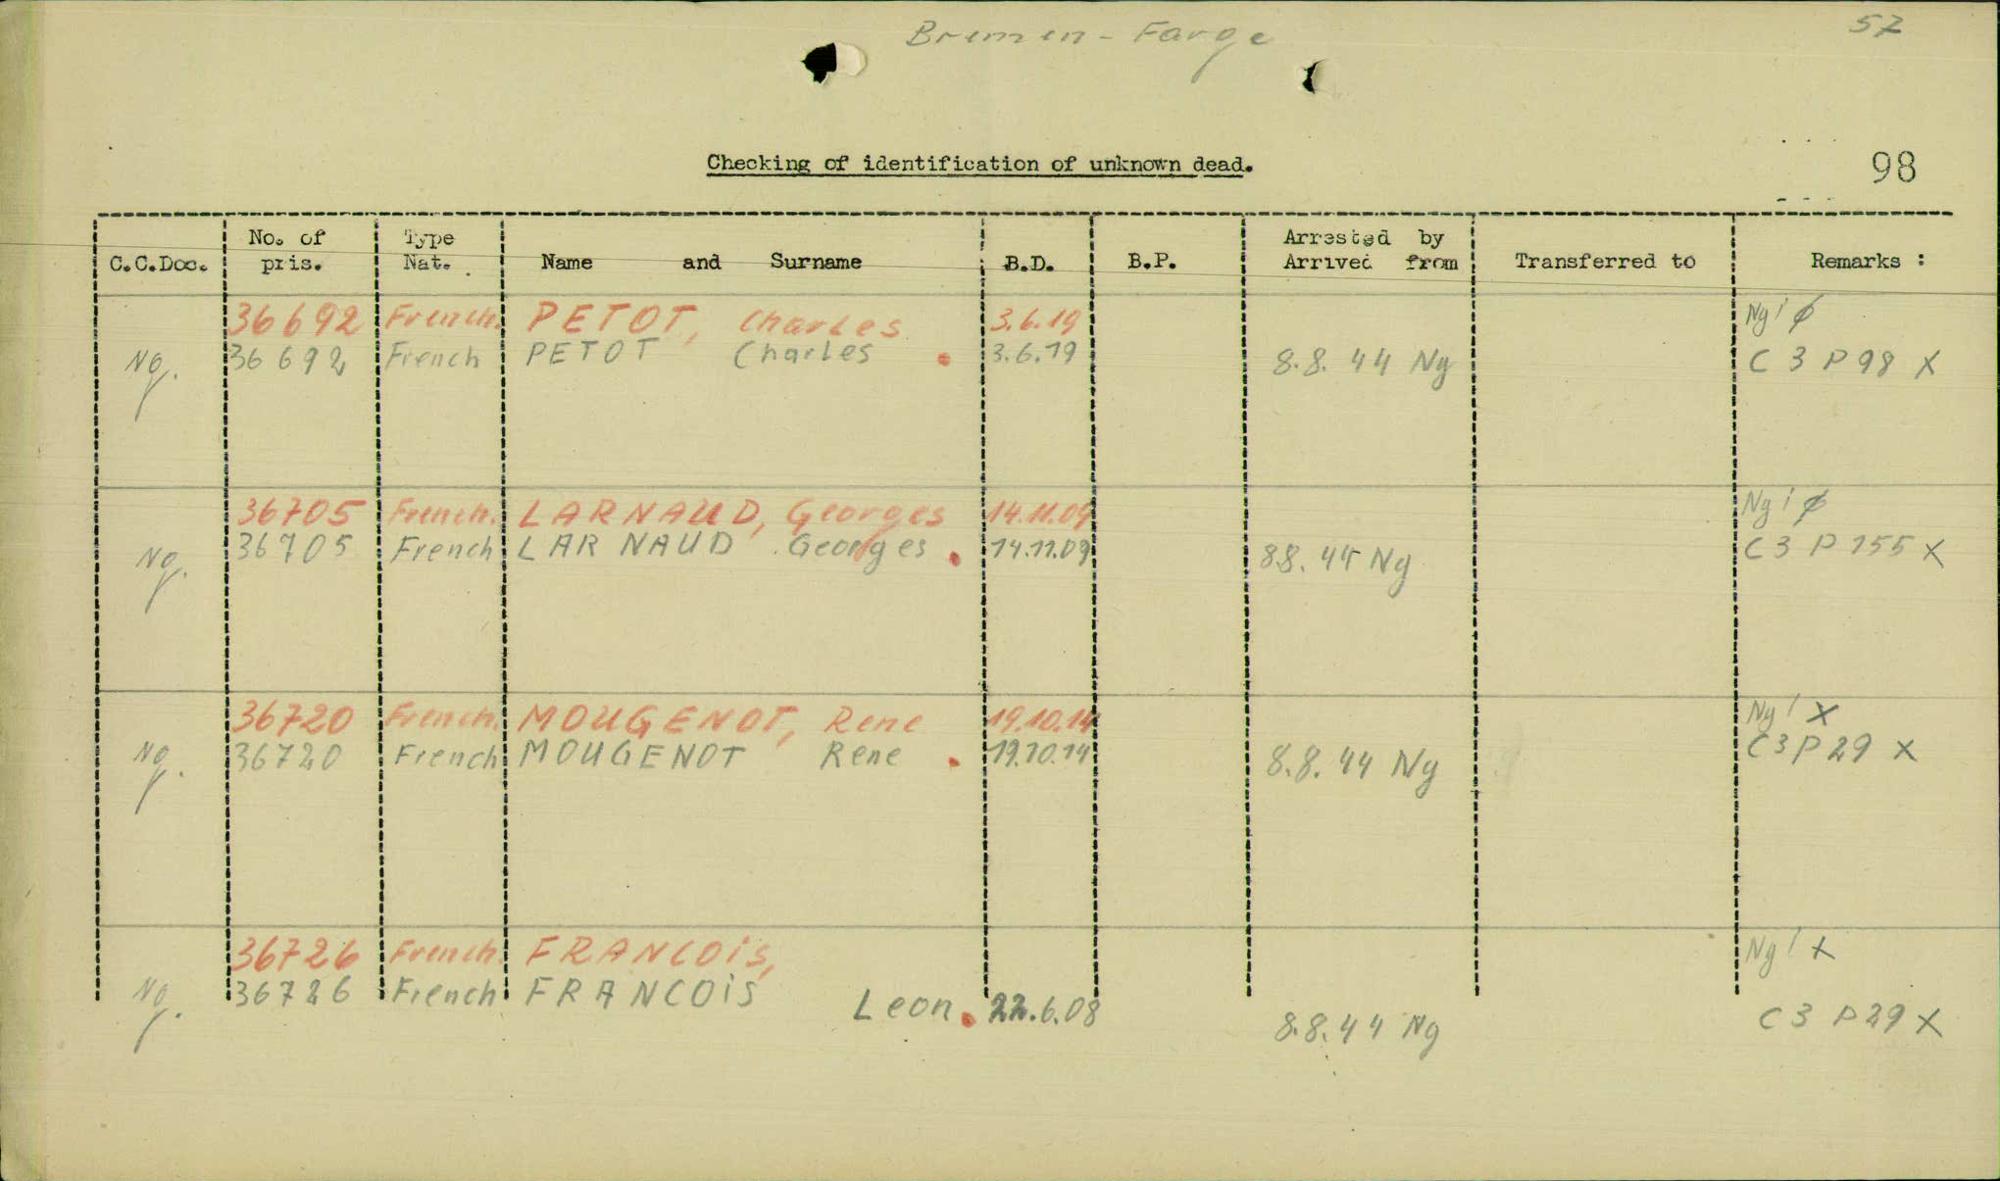 Bremen - Farge
57
Checking of identification of unknown dead.
98
C.C.Doc. No. of pris. Type Nat. Name and Surname B.D. B.P. Arrested by Arrived from Transferred to Remarks :
36692 French. PETOT, Charles 3.6.19 Ng! ø
Ng. 36692 French PETOT Charles . 3.6.19 8.8.44 Ng C 3 P 98 X
36705 French. LARNAUD, Georges 14.11.09 Ng! ø
Ng. 36705 French LARNAUD Georges . 14.11.09 8.8.44 Ng C 3 P 155 X
36720 French. MOUGENOT, Rene 19.10.14 Ng! X
Ng. 36720 French MOUGENOT Rene . 19.10.14 8.8.44 Ng C 3 P 29 X
36726 French. FRANCOiS, Ng! X
Ng. 36726 French FRANCOiS Leon . 22.6.08 8.8.44 Ng C 3 P 29 X